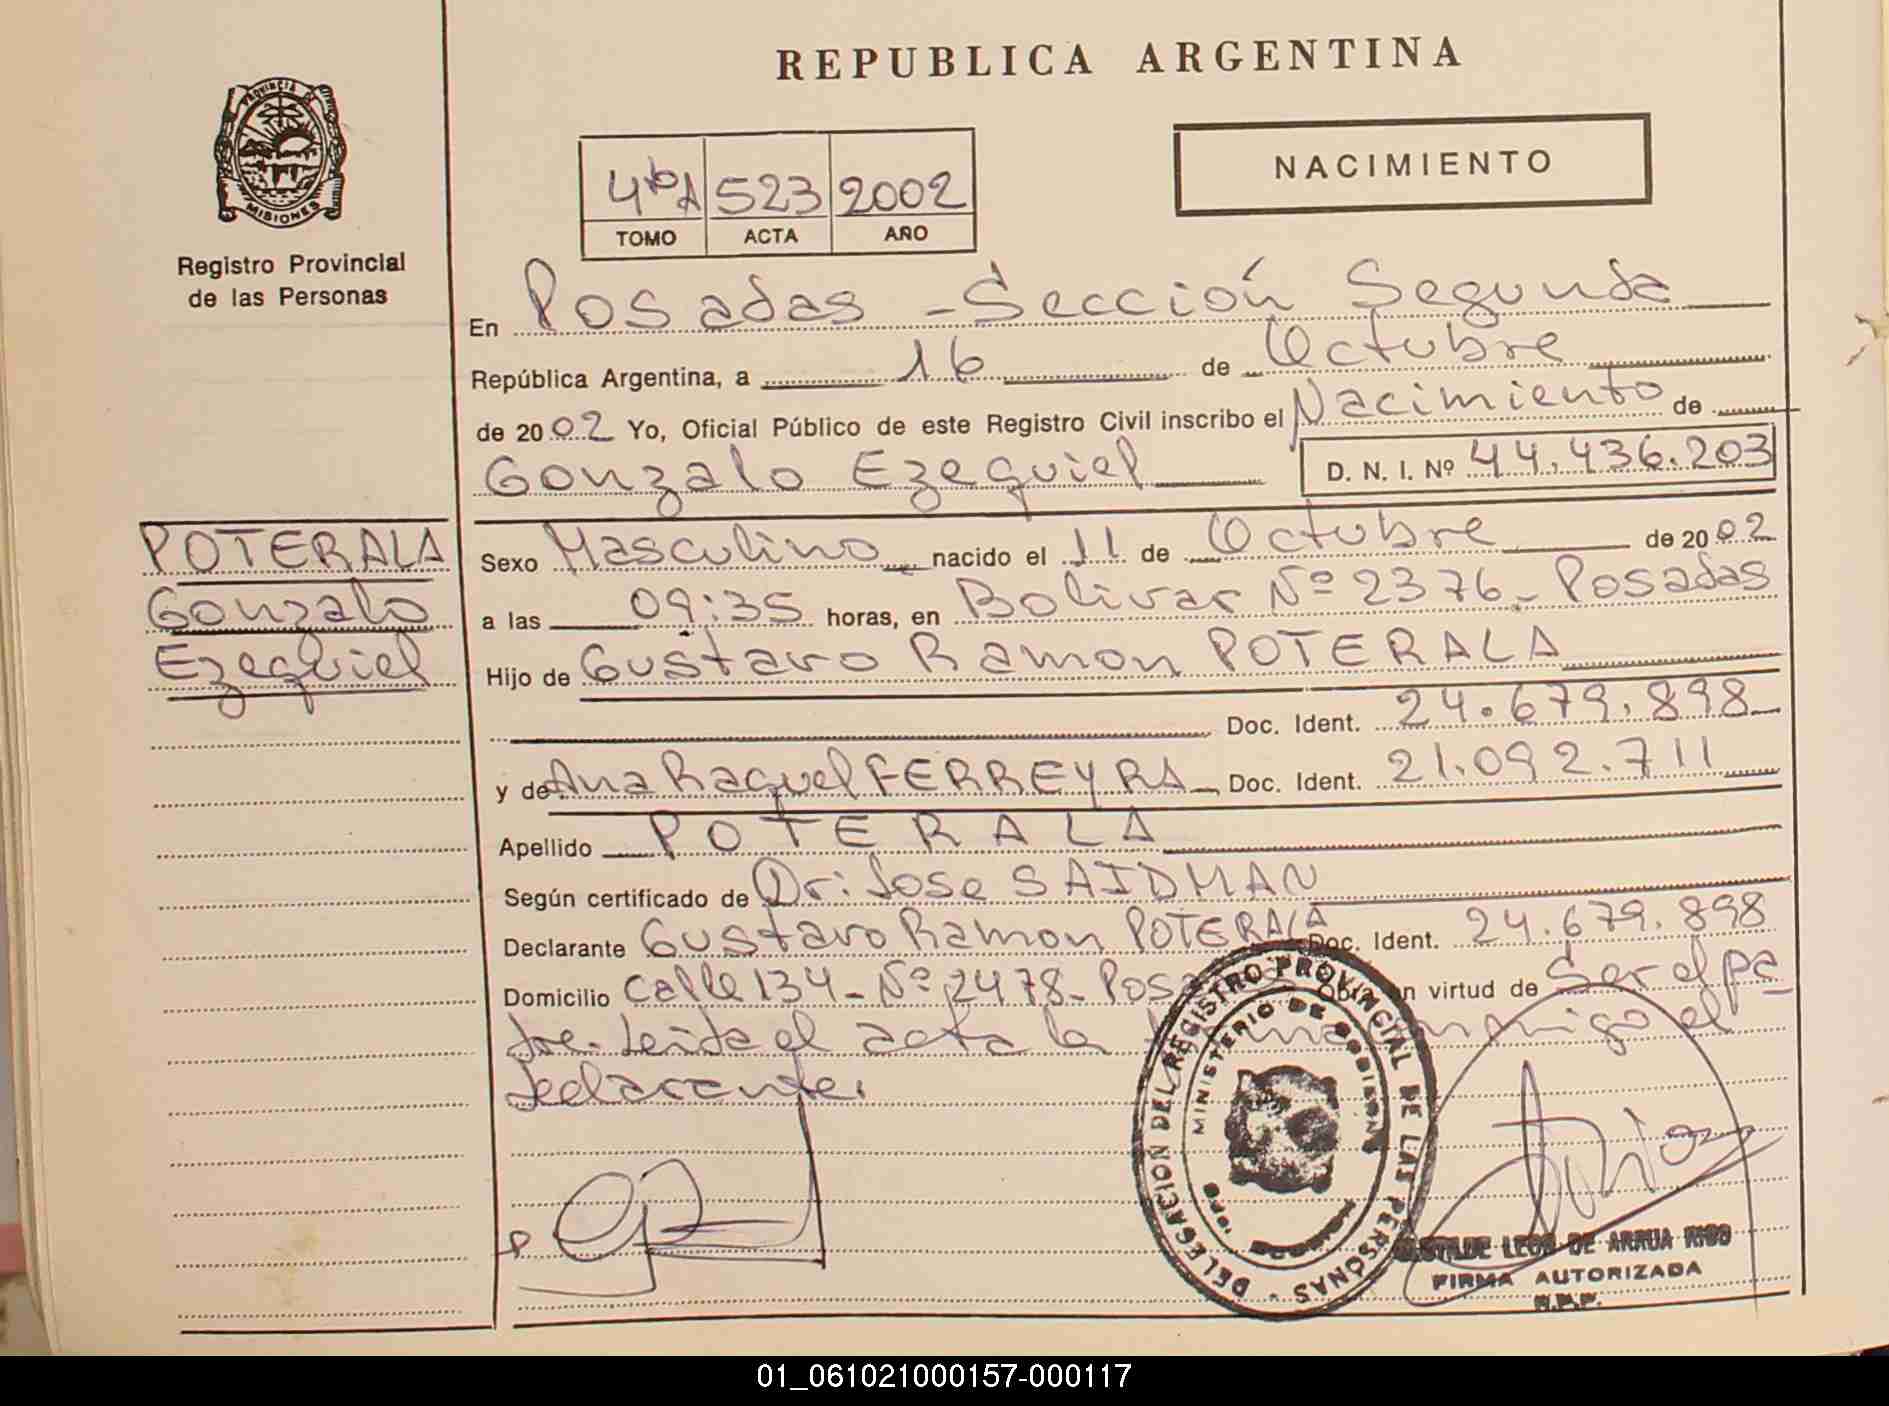 REPUBLICA ARGENTINA
PROVINCIA DE
MISIONES
Registro Provincial
de las Personas
NACIMIENTO
4tbA 523 2002
TOMO ACTA AÑO
En Posadas - Sección Segunda
República Argentina, a 16 de Octubre
de 2002 Yo, Oficial Público de este Registro Civil inscribo el Nacimiento de
Gonzalo Ezequiel D. N. I. Nº 44.436.203
POTERALA
Gonzalo
Ezequiel
Sexo Masculino nacido el 11 de Octubre de 2002
a las 09:35 horas, en Bolivar Nº 2376 - Posadas
Hijo de Gustavo Ramon POTERALA
Doc. Ident. 24.679.898
y de Ana Raquel FERREYRA Doc. Ident. 21.092.711
Apellido POTERALA
Según certificado de Dr: Jose SAIDMAN
Declarante Gustavo Ramon POTERALA Doc. Ident. 24.679.898
Domicilio Calle 134 - Nº 2478 - Posadas Obra en virtud de Ser el pa
dre. Leída el acta la firma conmigo el
declarante.
DELEGACION DEL REGISTRO PROVINCIAL DE LAS PERSONAS
MINISTERIO DE GOBIERNO
LEON DE ARRUA RIOS
FIRMA AUTORIZADA
R.P.P.
01_061021000157-000117